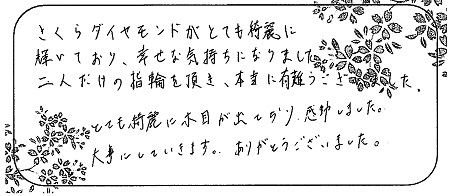 さくらダイヤモンドがとても綺麗に
輝いており、幸せな気持ちになりました
二人だけの指輪を頂き、本当に有難うございました。
とても綺麗に木目が出ており、感動しました。
大事にしていきます。ありがとうございました。